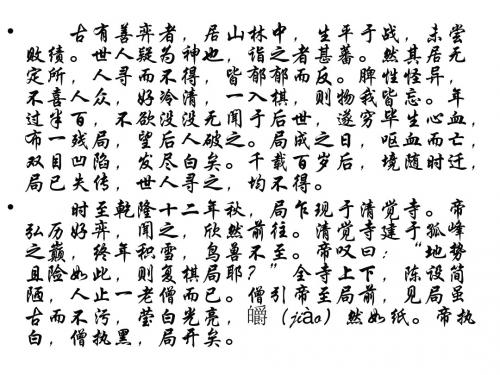 • 古有善弈者，居山林中，生平于战，未尝
败绩。世人疑为神也，诣之者甚蕃。然其居无
定所，人寻而不得，皆郁郁而反。脾性怪异，
不喜人众，好冷清，一入棋，则物我皆忘。年
过半百，不欲没没无闻于后世，遂穷毕生心血，
布一残局，望后人破之。局成之日，呕血而亡，
双目凹陷，发尽白矣。千载百岁后，境随时迁，
局已失传，世人寻之，均不得。
• 时至乾隆十二年秋，局乍现于清觉寺。帝
弘历好弈，闻之，欣然前往。清觉寺建于孤峰
之巅，终年积雪，鸟兽不至。帝叹曰：“地势
且险如此，则复棋局耶？”全寺上下，陈设简
陋，人止一老僧而已。僧引帝至局前，见局虽
古而不污，莹白光亮，皭（jiào）然如纸。帝执
白，僧执黑，局开矣。